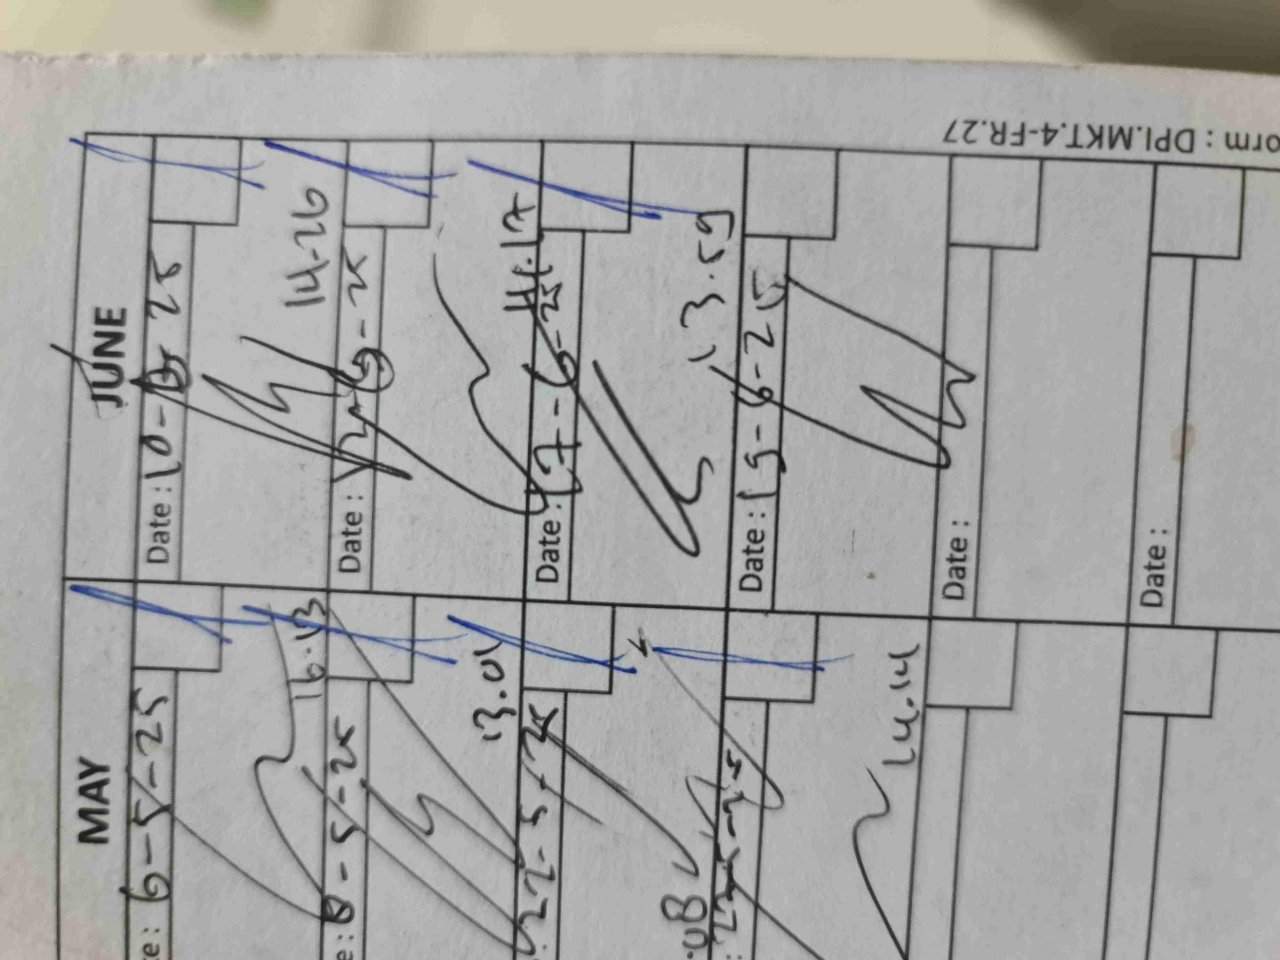 orm : DPI.MKT.4-FR.27
MAY
te: 6-5-25
16.43
e: 8-5-25
13.01
22-5-25
.08
14.14
JUNE
Date : 10-6-25
14.26
Date : 12-6-25
14.17
Date : 17-6-25
13.59
Date : 19-6-25
Date :
Date :